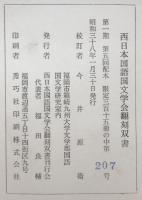 西日本国語国文学会翻刻双書
第一期 第五回配本 限定三百十五部の中第 207 号
昭和三十八年一月三十日発行
校訂者 今井源衛
福岡市箱崎九州大学文学部国語
国文学研究室内
発行者 西日本国語国文学会翻刻双書刊行会
代表者 福田良輔
福岡市渡辺通五丁目十四街区九号
印刷者 秀巧社印刷株式会社